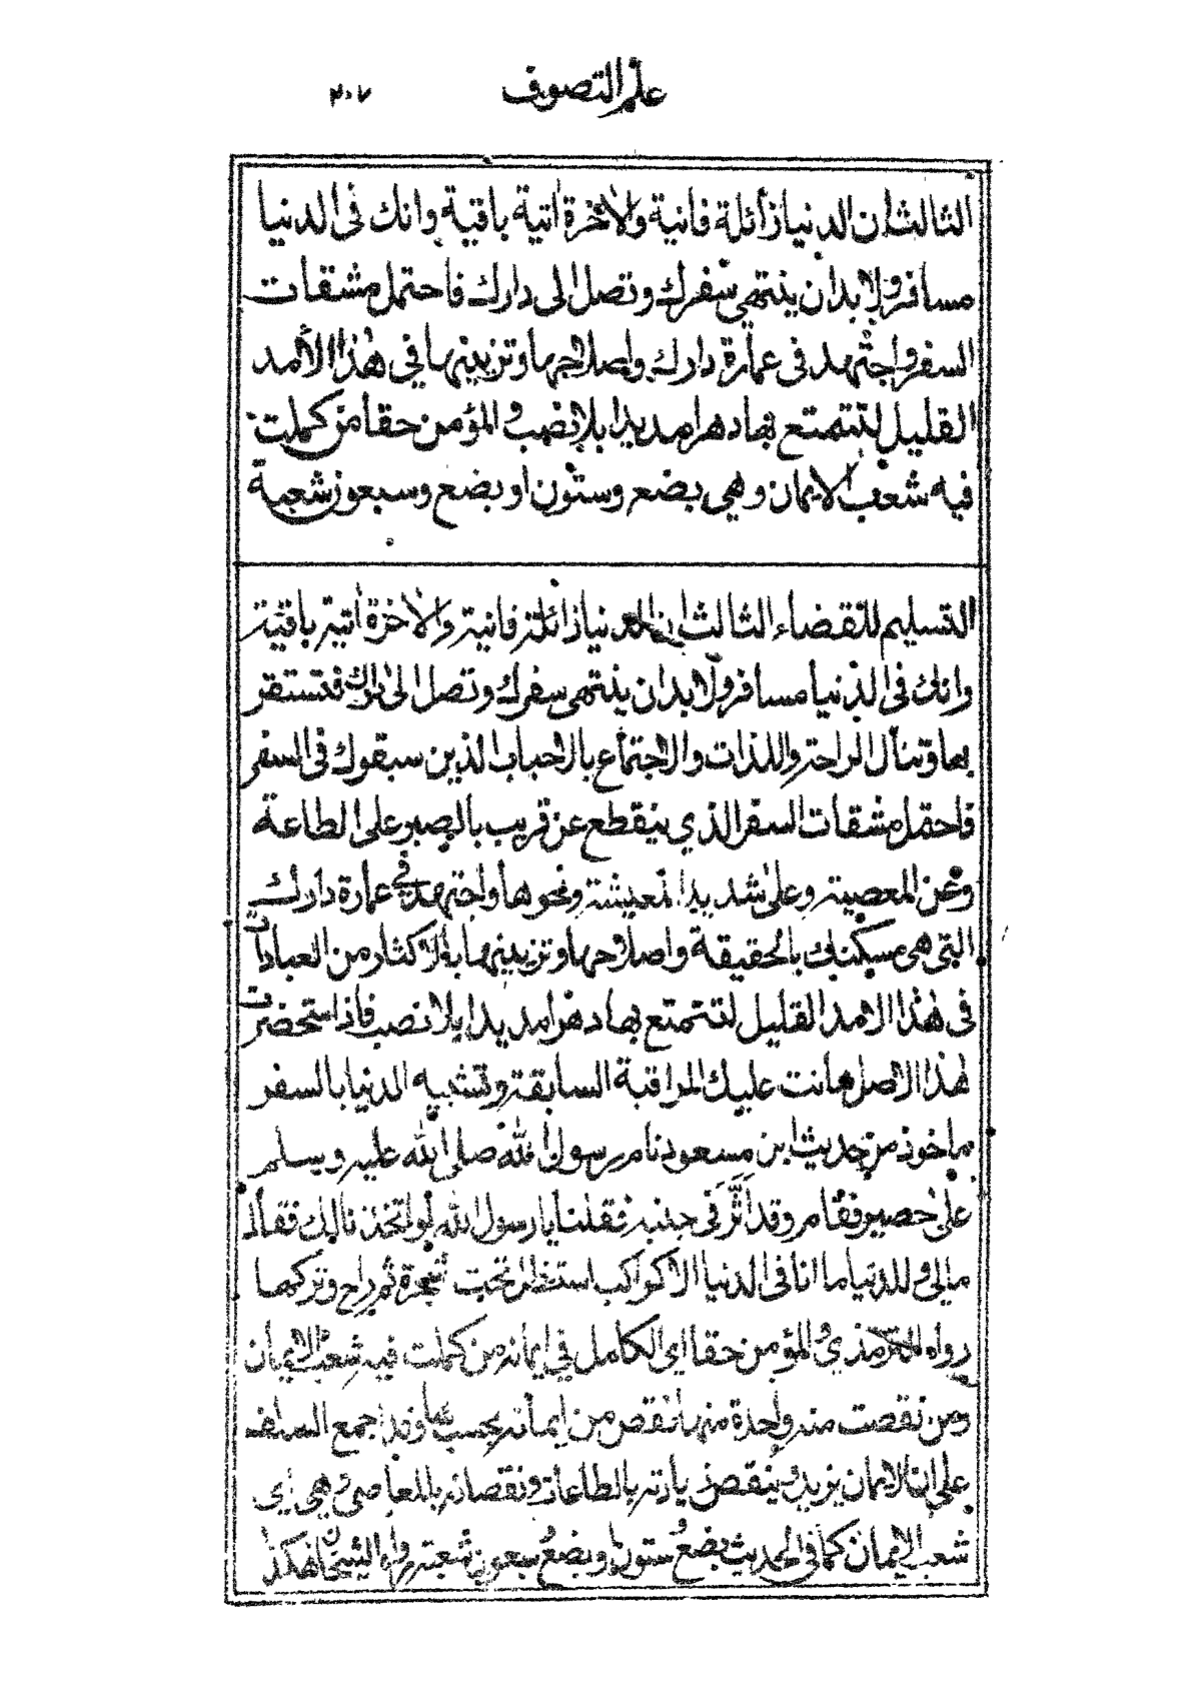 علم التصوف ٢٠٧
الثالث ان الدنيا زائلة فانية والاخرة اتية باقية وانك فى الدنيا
مسافر ولابد ان ينتهى سفرك وتصل الى دارك فاحتمل مشقات
السفر واجتهد فى عمارة دارك واصلاحها وتزيينها في هذا الأمد
القليل لتتمتع بها دهرا مديدا بلا نصب والمؤمن حقا من كملت
فيه شعب الايمان وهي بضع وستون او بضع وسبعون شعبة
التسليم للقضاء الثالث ان الدنيا زائلة فانية والاخرة اتية باقية
وانك فى الدنيا مسافر ولابد ان ينتهى سفرك وتصل الى دارك فتستقر
بها وتنال الراحة واللذات والاجتماع بالاحباب الذين سبقوك فى السفر
فاحتمل مشقات السفر الذي ينقطع عن قريب بالصبر على الطاعة
وعن المعصية وعلى شديد المعيشة ونحوها واجتهد في عمارة دارك
التى هى مسكنك بالحقيقة واصلاحها وتزيينها بالاكثار من العبادات
فى هذا الامد القليل لتتمتع بها دهرا مديدا بلا نصب فاذا استحضرت
هذا الاصل هانت عليك المراقبة السابقة وتشبيه الدنيا بالسفر
ماخوذ من حديث ابن مسعود نام رسول الله صلى الله عليه وسلم
على حصير فقام وقد اثّر فى جنبه فقلنا يا رسول الله لو اتخذنا لك فقال
مالى وللدنيا ما انا فى الدنيا الا كراكب استظل تحت شجرة ثم راح وتركها
رواه الترمذي والمؤمن حقا اى الكامل في ايمانه من كملت فيه شعب الايمان
ومن نقصت منه واحدة منها نقص من ايمانه بحسبها وقد اجمع السلف
على ان الايمان يزيد وينقص زيادته بالطاعات ونقصانه بالمعاصى وهي أي
شعب الايمان كما فى الحديث بضع وستون او بضع وسبعون شعبة رواه الشيخان هكذا